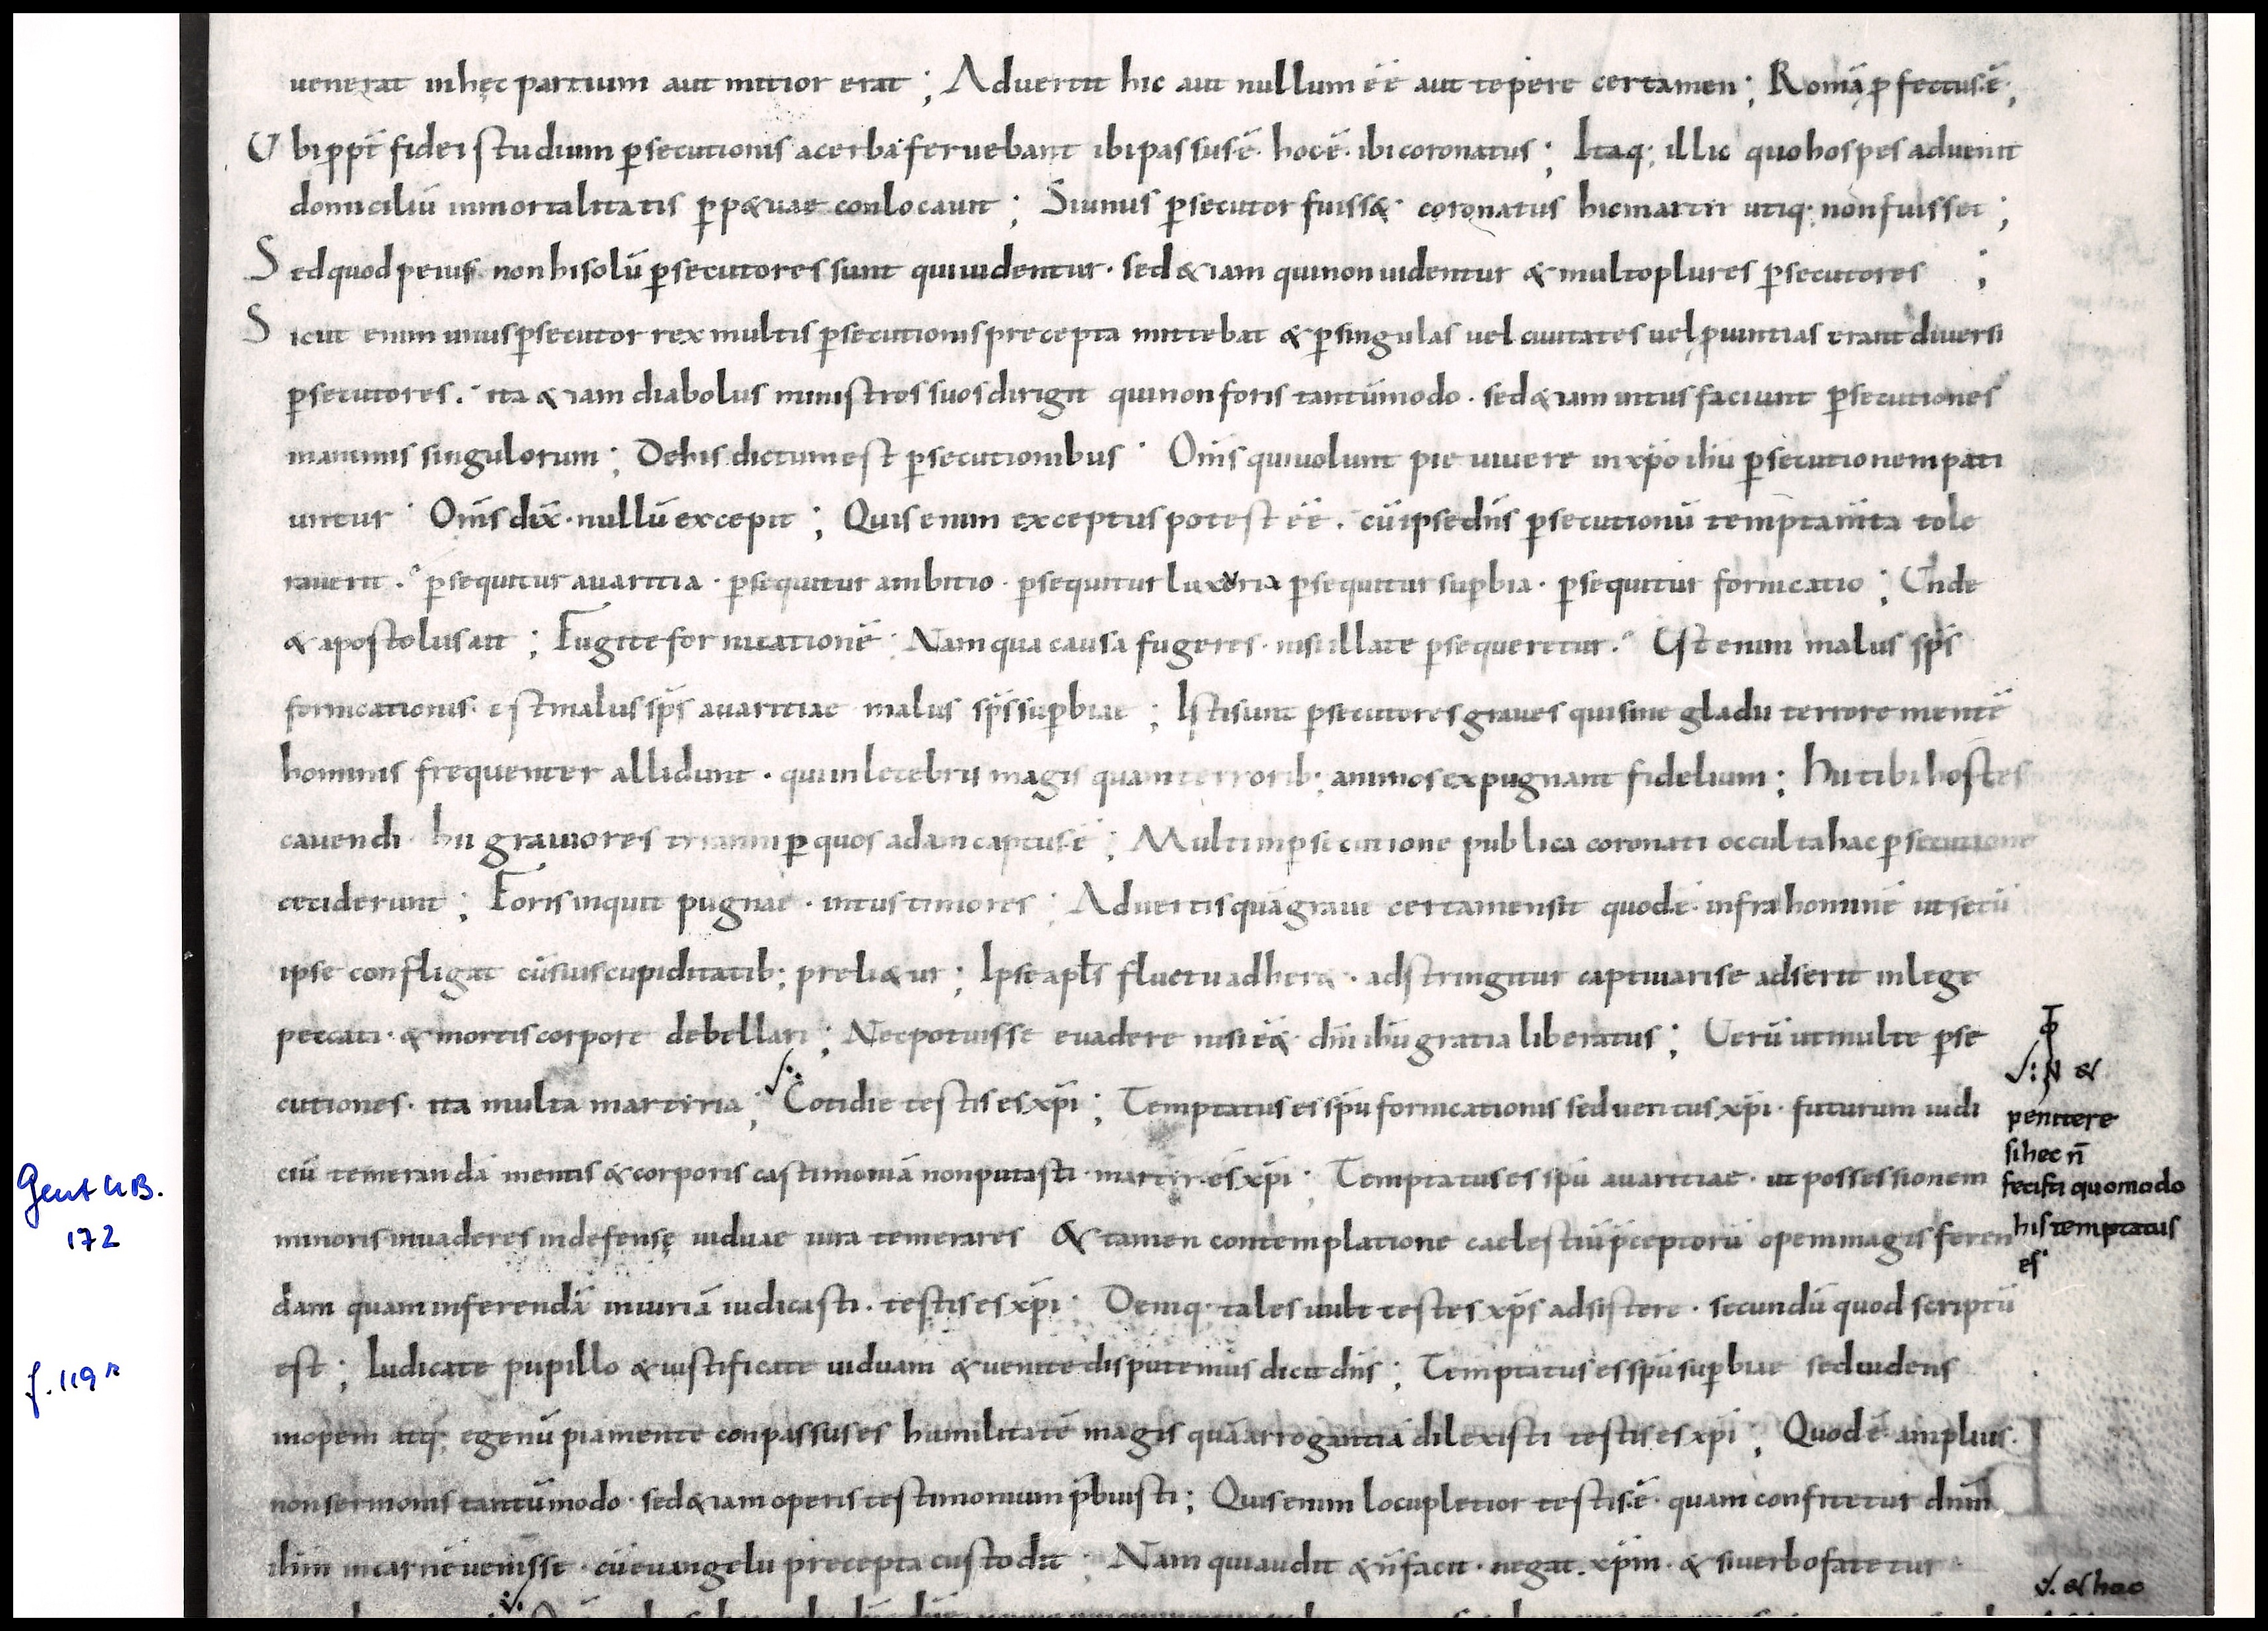 uenerat inhęc partium aut mitior erat ; Aduertit hic aut nullum ēē aut tepere certamen ; Romā ꝓfectus.ē.;
Ubi ppt̄ fidei studium p̱secutionis acerba feruebant ibi passus.ē. hoc.ē. ibi coronatus ; Itaq; illic quo hospes aduenit
domiciliū inmortalitatis p̱p&uae conlocauit ; Siunus p̱secutor fuiss& coronatus hic martir utiq; non fuisset ;
Sed quod peius non hi solū p̱secutores sunt qui uidentur · sed &iam qui non uidentur & multo plures p̱secutores ;
Sicut enim unus p̱secutor rex multis p̱secutionis precepta mittebat & p̱ singulas uel ciuitates uel ꝓuintias erant diuersi
p̱secutores · ita &iam diabolus ministros suos dirigit qui non foris tantūmodo · sed &iam intus faciunt p̱secutiones
in animis singulorum ; De his dictum est p̱secutionibus · Om̄s qui uolunt pie uiuere in xp̄o ih̄u p̱secutionem pati
untur · Om̄s dix̄ · nullū excepit ; Quis enim exceptus potest ēē · cū ipse dn̄s p̱secutionū temptam̄ta tole
rauerit · p̱sequitur auaritia · p̱sequitur ambitio · p̱sequitur luxuria p̱sequitur sup̱bia · p̱sequitur fornicatio ; Unde
& apostolus ait ; Fugite fornicationē · Nam qua causa fugeres · nisi illa te p̱sequeretur · Est enim malus sp̄s
fornicationis · est malus sp̄s auaritiae malus sp̄s sup̱biae ; Isti sunt p̱secutores graues qui sine gladii terrore mentē
hominis frequenter allidunt · qui inlecebris magis quam terrorib; animos expugnant fidelium ; Hii tibi hostes
cauendi · hii grauiores tiranni p̱ quos adam captus.ē ; Multi in p̱secutione publica coronati occulta hac p̱secutione
ceciderunt ; Foris inquit pugnae · intus timores ; Aduertis quā graue certamen sit quod.ē. infra hominē ut secū
ipse confligat cū suis cupiditatib; preli&ur ; Ipse apl̄s fluctu adher& · adstringitur captiuari se adserit in lege
peccati · & mortis corpore debellari ; Nec potuisse euadere nisi ēē& dn̄i ih̄u gratia liberatus ; Uerū ut multe p̱se
cutiones · ita multa martiria ; Cotidie testis es xp̄i ; Temptatus es sp̄u fornicationis sed ueritus xp̄i · futurum iudi
ciū temerandā mentis & corporis castimoniā non putasti · martir es xp̄i · Temptatus es sp̄u auaritiae · ut possessionem
minoris inuaderes indefensę uiduae iura temerares & tamen contemplatione caelestiū p̄ceptorū opem magis feren
dam quam inferendā iniuriā iudicasti · testis es xp̄i · Deniq; tales uult testes xp̄s adsistere · secundū quod scriptū
est ; Iudicate pupillo & iustificate uiduam & uenite disputemus dicit dn̄s ; Temptatus es sp̄u sup̱biae sed uidens
inopem atq; egenū pia mente conpassus es humilitatē magis quā arrogantiā dilexisti testis es xp̄i ; Quod.ē. amplius ·
non sermonis tantūmodo · sed &iam operis testimonium p̄buisti ; Quis enim locupletior testis.ē. quam confitetur dn̄m
ih̄m in carnē uenisse · cū euangelii precepta custodit ; Nam qui audit & n̄ facit · negat xp̄m · & si uerbo fatetur
N &
penitere
si hec n̄
fecisti quomodo
his temptatus
es
& hac
Gent UB.
172
f. 119 r